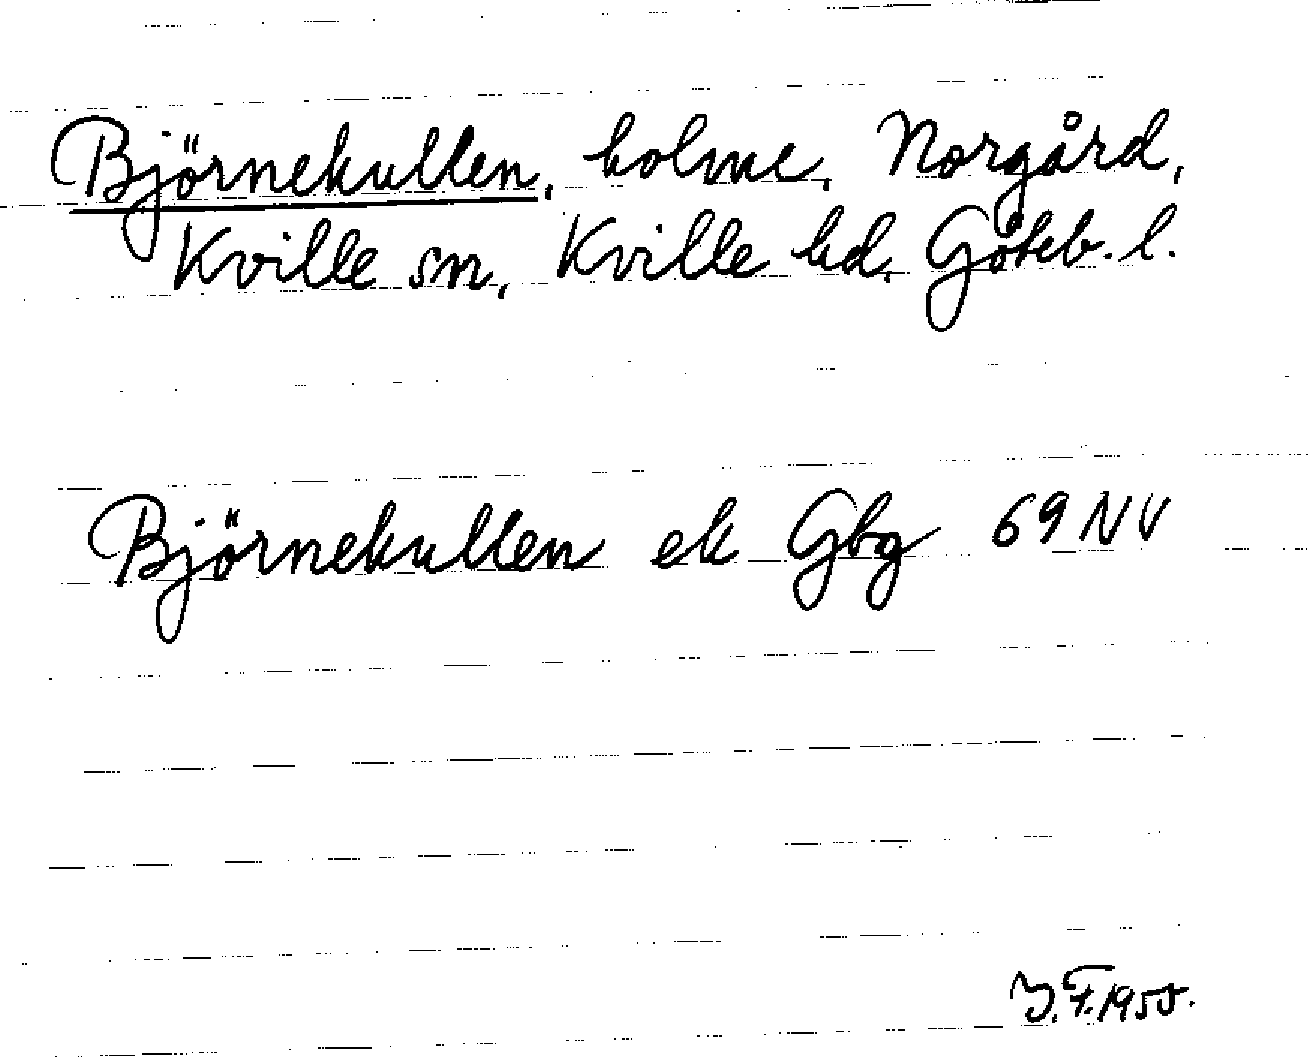 Björnekullen, holme, Norgård,
Kville sn, Kville hd, Göteb. l.
Björnekullen ek Gbg 69 NV
1955.